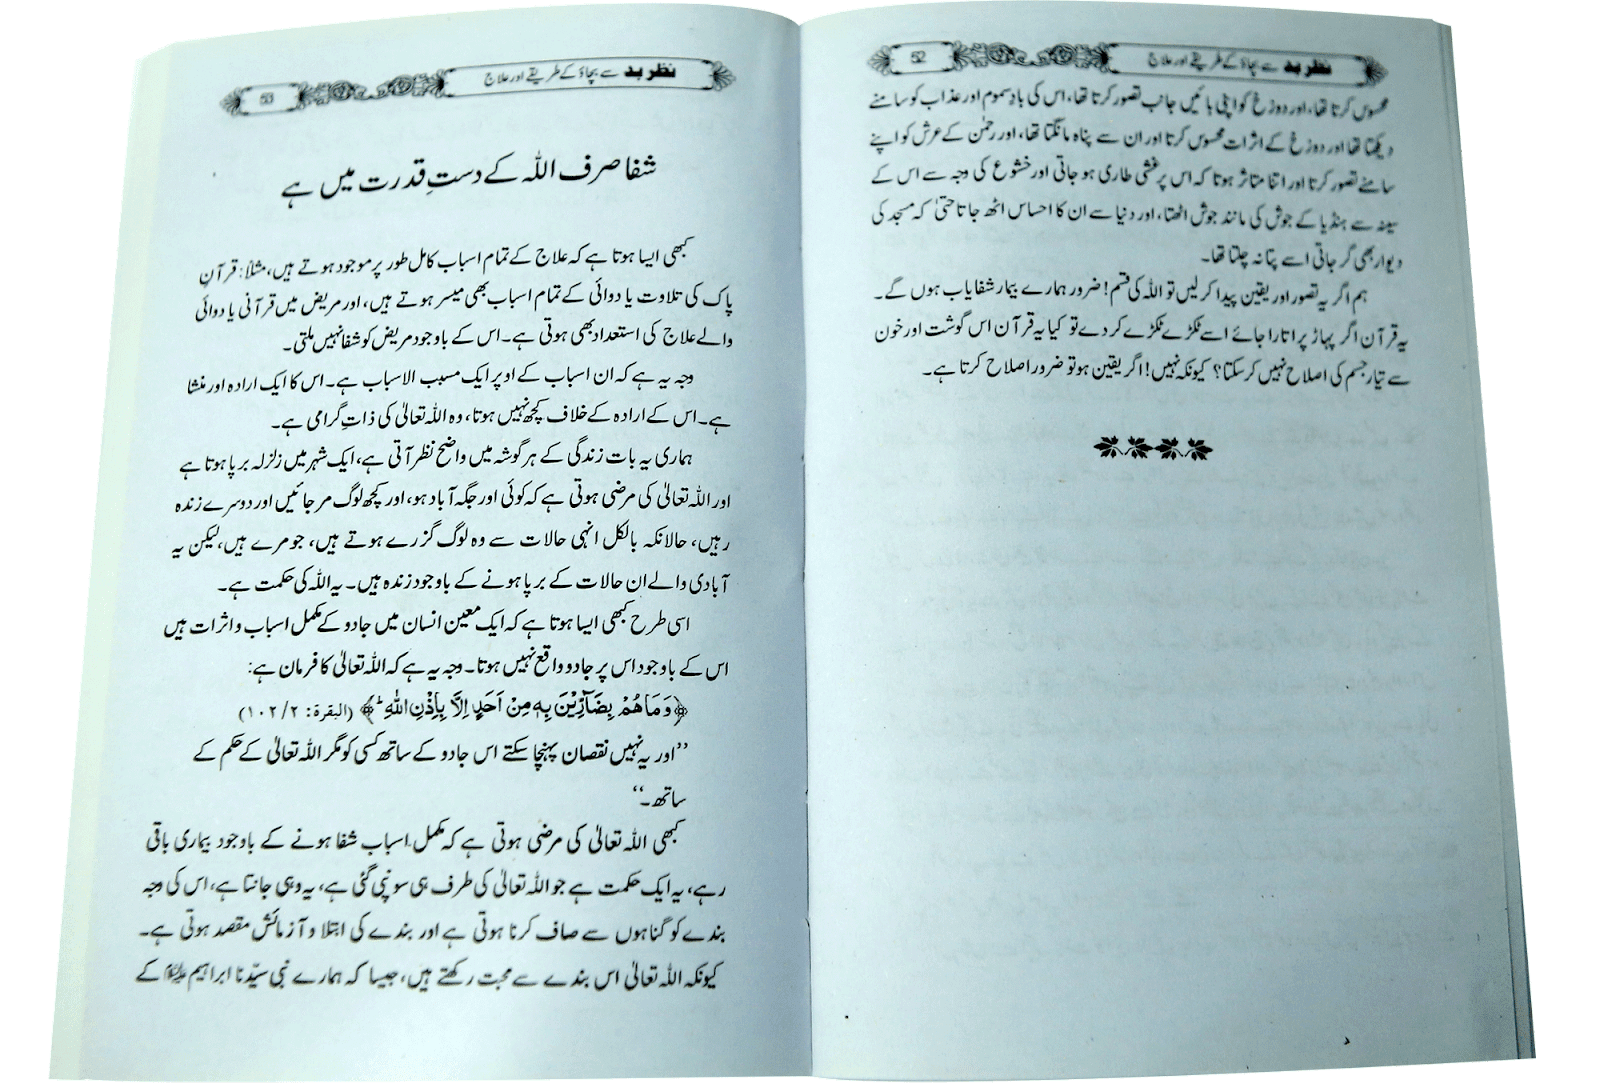 52
نظر بد سے بچاؤ کے طریقے اور علاج
محسوس کرتا تھا، اور دوزخ کو اپنی بائیں جانب تصور کرتا تھا، اس کی بادِ سموم اور عذاب کو سامنے
دیکھتا تھا اور دوزخ کے اثرات محسوس کرتا اور ان سے پناہ مانگتا تھا، اور رحمٰن کے عرش کو اپنے
سامنے تصور کرتا اور اتنا متاثر ہوتا کہ اس پر غشی طاری ہو جاتی اور خشوع کی وجہ سے اس کے
سینہ سے ہنڈیا کے جوش کی مانند جوش اٹھتا، اور دنیا سے ان کا احساس اٹھ جاتا حتیٰ کہ مسجد کی
دیوار بھی گر جاتی اسے پتا نہ چلتا تھا۔
ہم اگر یہ تصور اور یقین پیدا کر لیں تو اللہ کی قسم! ضرور ہمارے بیمار شفایاب ہوں گے۔
یہ قرآن اگر پہاڑ پر اتارا جائے اسے ٹکڑے ٹکڑے کر دے تو کیا یہ قرآن اس گوشت اور خون
سے تیار جسم کی اصلاح نہیں کر سکتا؟ کیونکہ نہیں! اگر یقین ہو تو ضرور اصلاح کرتا ہے۔
53
نظر بد سے بچاؤ کے طریقے اور علاج
شفا صرف اللہ کے دستِ قدرت میں ہے
کبھی ایسا ہوتا ہے کہ علاج کے تمام اسباب کامل طور پر موجود ہوتے ہیں، مثلاً: قرآنِ
پاک کی تلاوت یا دوائی کے تمام اسباب بھی میسر ہوتے ہیں، اور مریض میں قرآنی یا دوائی
والے علاج کی استعداد بھی ہوتی ہے۔ اس کے باوجود مریض کو شفا نہیں ملتی۔
وجہ یہ ہے کہ ان اسباب کے اوپر ایک مسبب الاسباب ہے۔ اس کا ایک ارادہ اور منشا
ہے۔ اس کے ارادہ کے خلاف کچھ نہیں ہوتا، وہ اللہ تعالیٰ کی ذاتِ گرامی ہے۔
ہماری یہ بات زندگی کے ہر گوشہ میں واضح نظر آتی ہے، ایک شہر میں زلزلہ برپا ہوتا ہے
اور اللہ تعالیٰ کی مرضی ہوتی ہے کہ کوئی اور جگہ آباد ہو، اور کچھ لوگ مر جائیں اور دوسرے زندہ
رہیں، حالانکہ بالکل انہی حالات سے وہ لوگ گزرے ہوتے ہیں، جو مرے ہیں، لیکن یہ
آبادی والے ان حالات کے برپا ہونے کے باوجود زندہ ہیں۔ یہ اللہ کی حکمت ہے۔
اسی طرح کبھی ایسا ہوتا ہے کہ ایک معین انسان میں جادو کے مکمل اسباب و اثرات ہیں
اس کے باوجود اس پر جادو واقع نہیں ہوتا۔ وجہ یہ ہے کہ اللہ تعالیٰ کا فرمان ہے:
﴿وَمَا هُمْ بِضَآرِّيْنَ بِهٖ مِنْ اَحَدٍ اِلَّا بِاِذْنِ اللّٰهِ ؕ﴾ (البقرة: ١٠٢/٢)
”اور یہ نہیں نقصان پہنچا سکتے اس جادو کے ساتھ کسی کو مگر اللہ تعالیٰ کے حکم کے
ساتھ۔“
کبھی اللہ تعالیٰ کی مرضی ہوتی ہے کہ مکمل اسباب شفا ہونے کے باوجود بیماری باقی
رہے، یہ ایک حکمت ہے جو اللہ تعالیٰ کی طرف ہی سونپی گئی ہے، یہ وہی جانتا ہے، اس کی وجہ
بندے کو گناہوں سے صاف کرنا ہوتی ہے اور بندے کی ابتلا و آزمائش مقصد ہوتی ہے۔
کیونکہ اللہ تعالیٰ اس بندے سے محبت رکھتے ہیں، جیسا کہ ہمارے نبی سیّدنا ابراہیم علیہ السلام کے